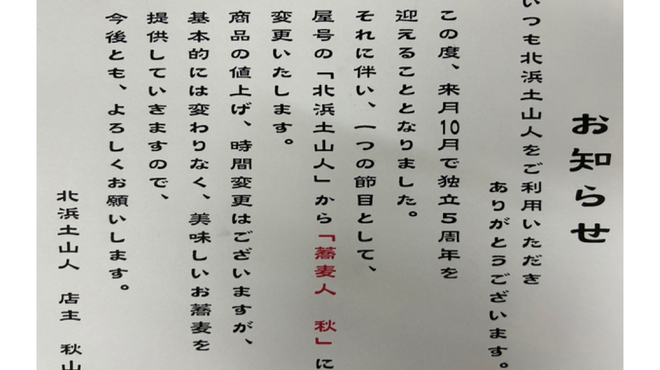 お知らせ
いつも北浜土山人をご利用いただき
ありがとうございます。
この度、来月10月で独立5周年を
迎えることとなりました。
それに伴い、一つの節目として、
屋号の「北浜土山人」から「蕎麦人 秋」に
変更いたします。
商品の値上げ、時間変更はございますが、
基本的には変わりなく、美味しいお蕎麦を
提供していきますので、
今後とも、よろしくお願いします。
北浜土山人 店主 秋山